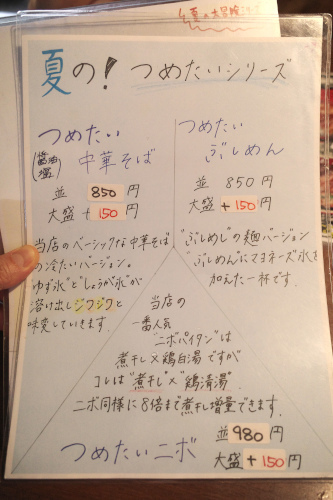 夏の!つめたいシリーズ
つめたい
(醤油 塩) 中華そば
並 850 円
大盛 + 150 円
当店のベーシックな中華そば
の冷たいバージョン。
ゆず氷としょうが氷が
溶け出しジワジワと
味変していきます。
つめたい
ぶしめん
並 850 円
大盛 + 150 円
"ぶしめし"の麺バージョン
ぶしめんにマヨネーズ氷を
加えた一杯です。
当店の
一番人気
ニボパイタンは
煮干し×鶏白湯ですが
コレは"煮干し"×"鶏清湯"
ニボ同様に8倍まで煮干し増量できます。
つめたいニボ
並 980 円
大盛 + 150 円